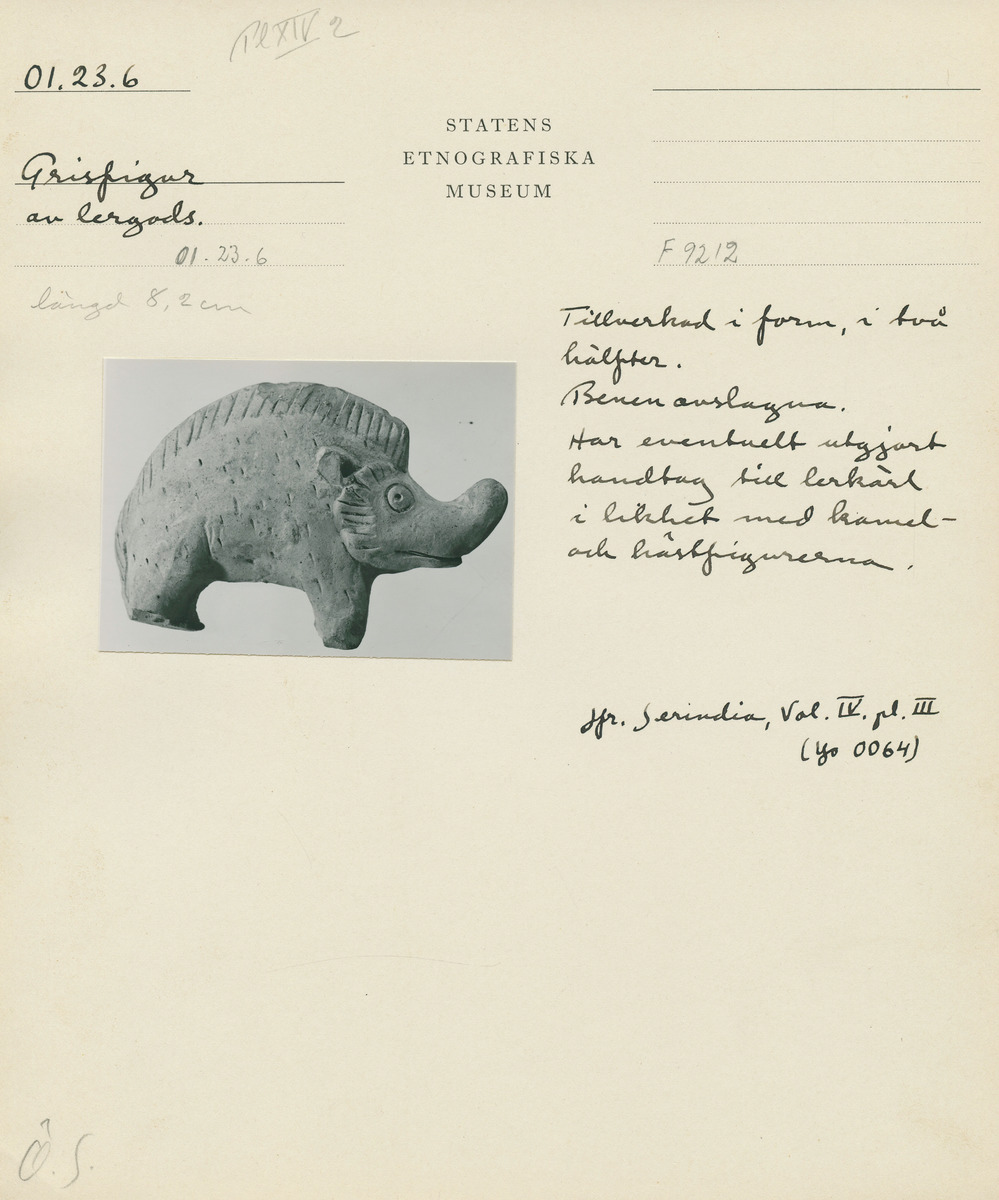 Pl XIV 2
01.23.6
STATENS
ETNOGRAFISKA
MUSEUM
Grisfigur
av lergods.
01.23.6
längd 8,2 cm
F 9212
Tillverkad i form, i två
hälfter.
Benen avslagna.
Har eventuelt utgjort
handtag till lerkärl
i likhet med kamel-
och hästfigurerna.
Jfr. Serindia, Vol. IV. pl. III
(Yo 0064)
Ö.S.